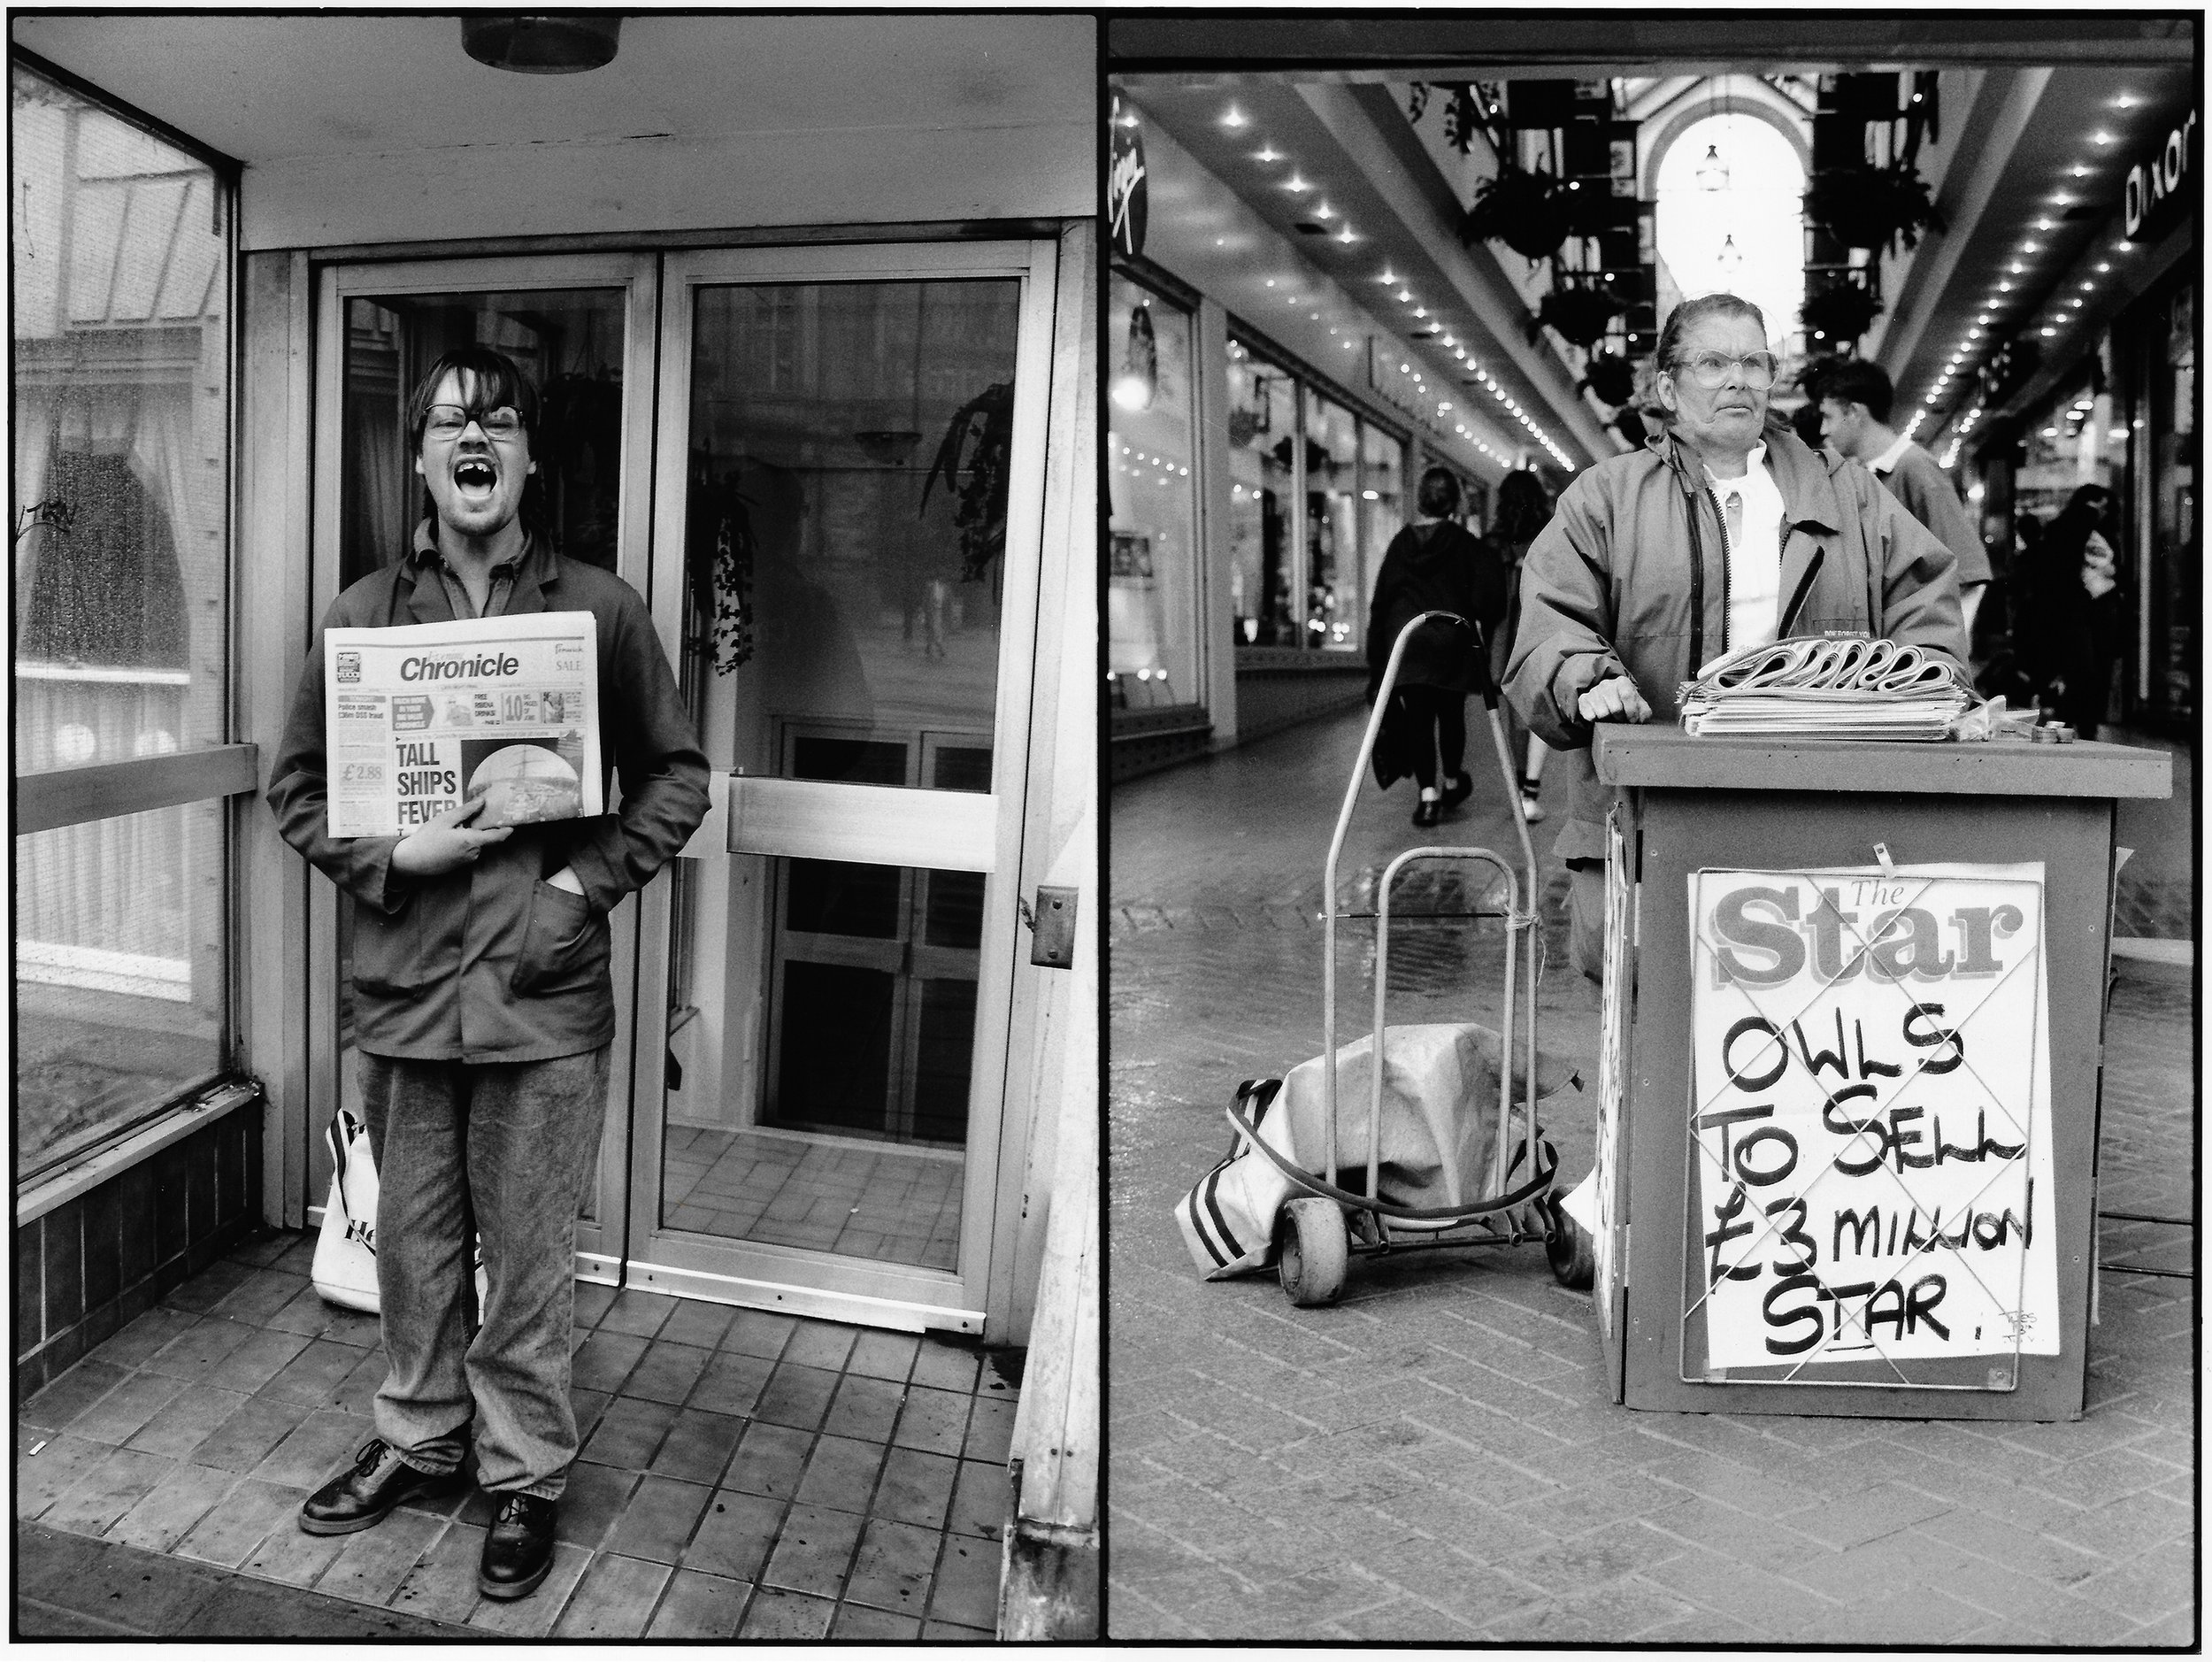 Chronicle
SALE
Police smash
£36m DSS fraud
FREE
RIBENA
DRINKS
10
£2.88
TALL
SHIPS
FEVER
He
Virgin
Dixon
The
Star
OWLS
TO SELL
£3 MILLION
STAR.